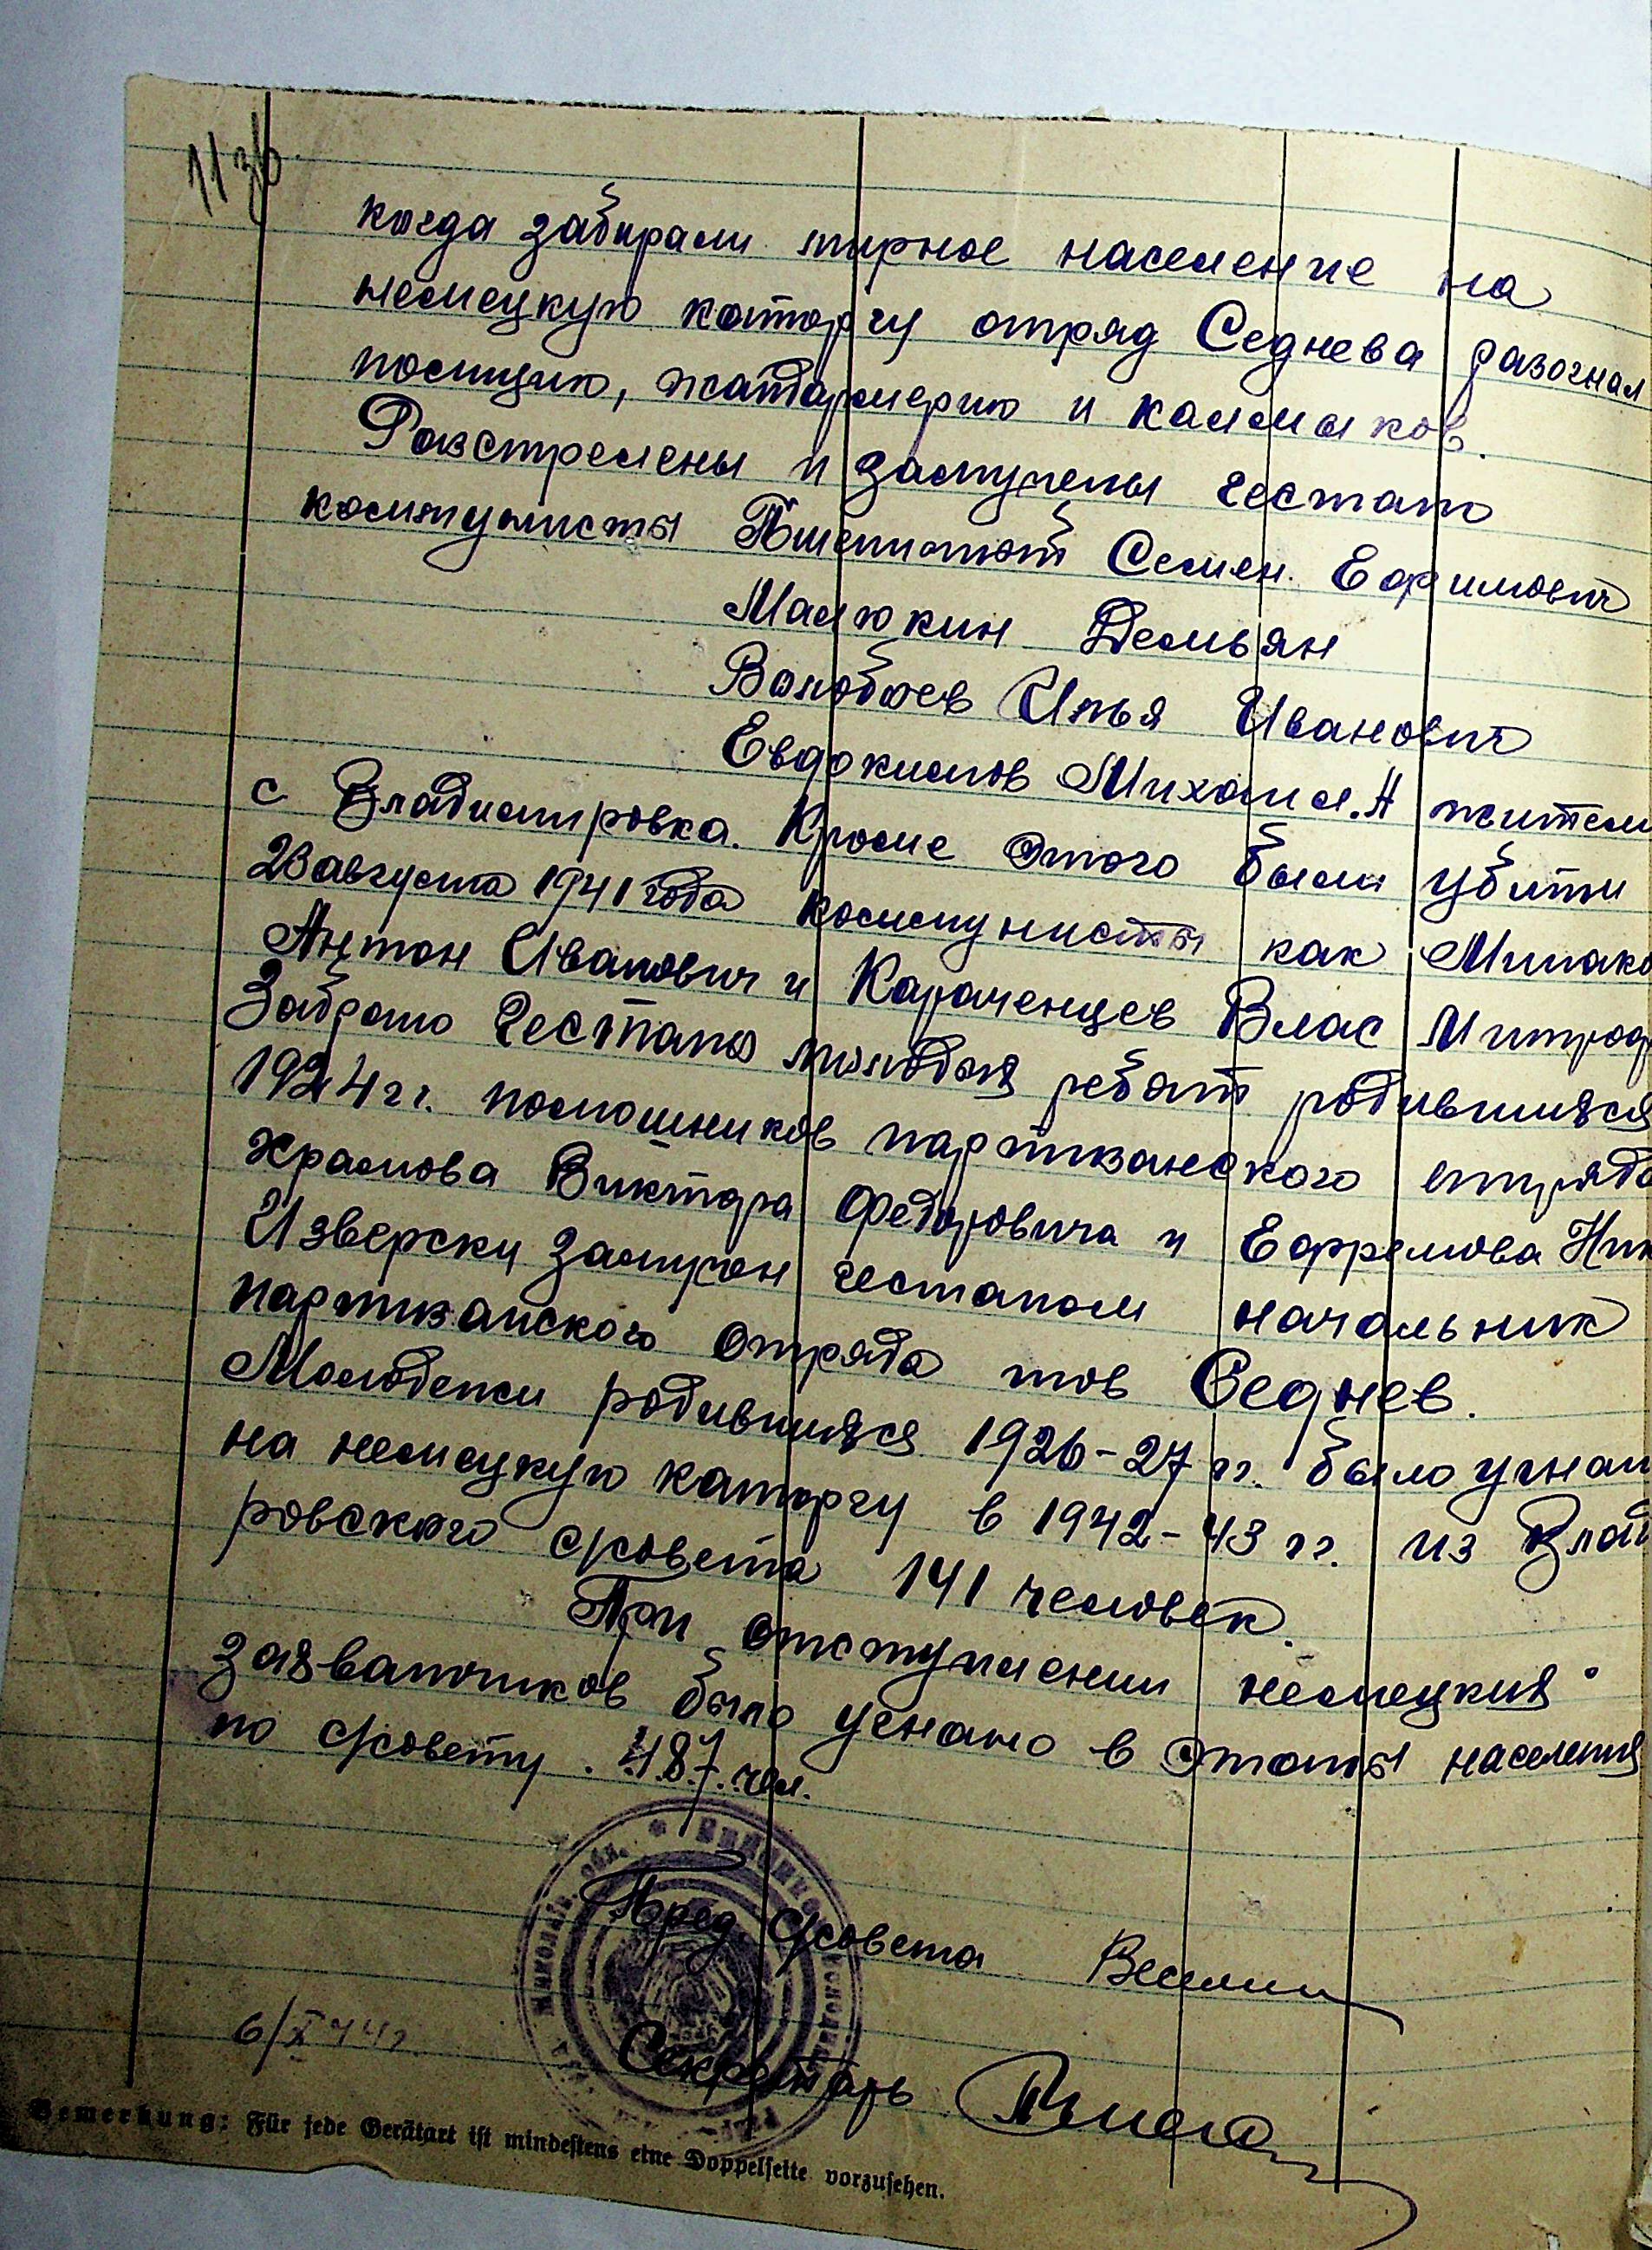 когда забирали мирное население на
немецкую каторгу отряд Седнева разогнал
полицию, жандармерию и калмыков.
Разстрелены и замучены гестапо
комунисты Семен Ефимович
Малюкин Демьян
Воробьев Илья Иванович
Евдокимов Михаил. А жители
с Владимировка. Кроме этого были убиты
23 августа 1941 года коммунисты как
Антон Иванович и Караченцев Влас
Забрано Гестапо молодых ребят родившихся
1924 гг. помошников партизанского отряда
Храмова Виктора Федоровича и Ефремова
Изверски замучен гестапом начальник
партизанского отряда тов Седнев.
Молодежи родившихся 1926-27 гг. было
на немецкую каторгу в 1942-43 гг. из
ровского с/совета 141 человек.
При отступлении немецких
захватчиков было угнано в этапы населения
по с/совету 487 чел.
Пред с/совета
6/X 44г
Секретарь
Bemerkung: Für jede Gerätart ist mindestens eine Doppelseite vorzusehen.